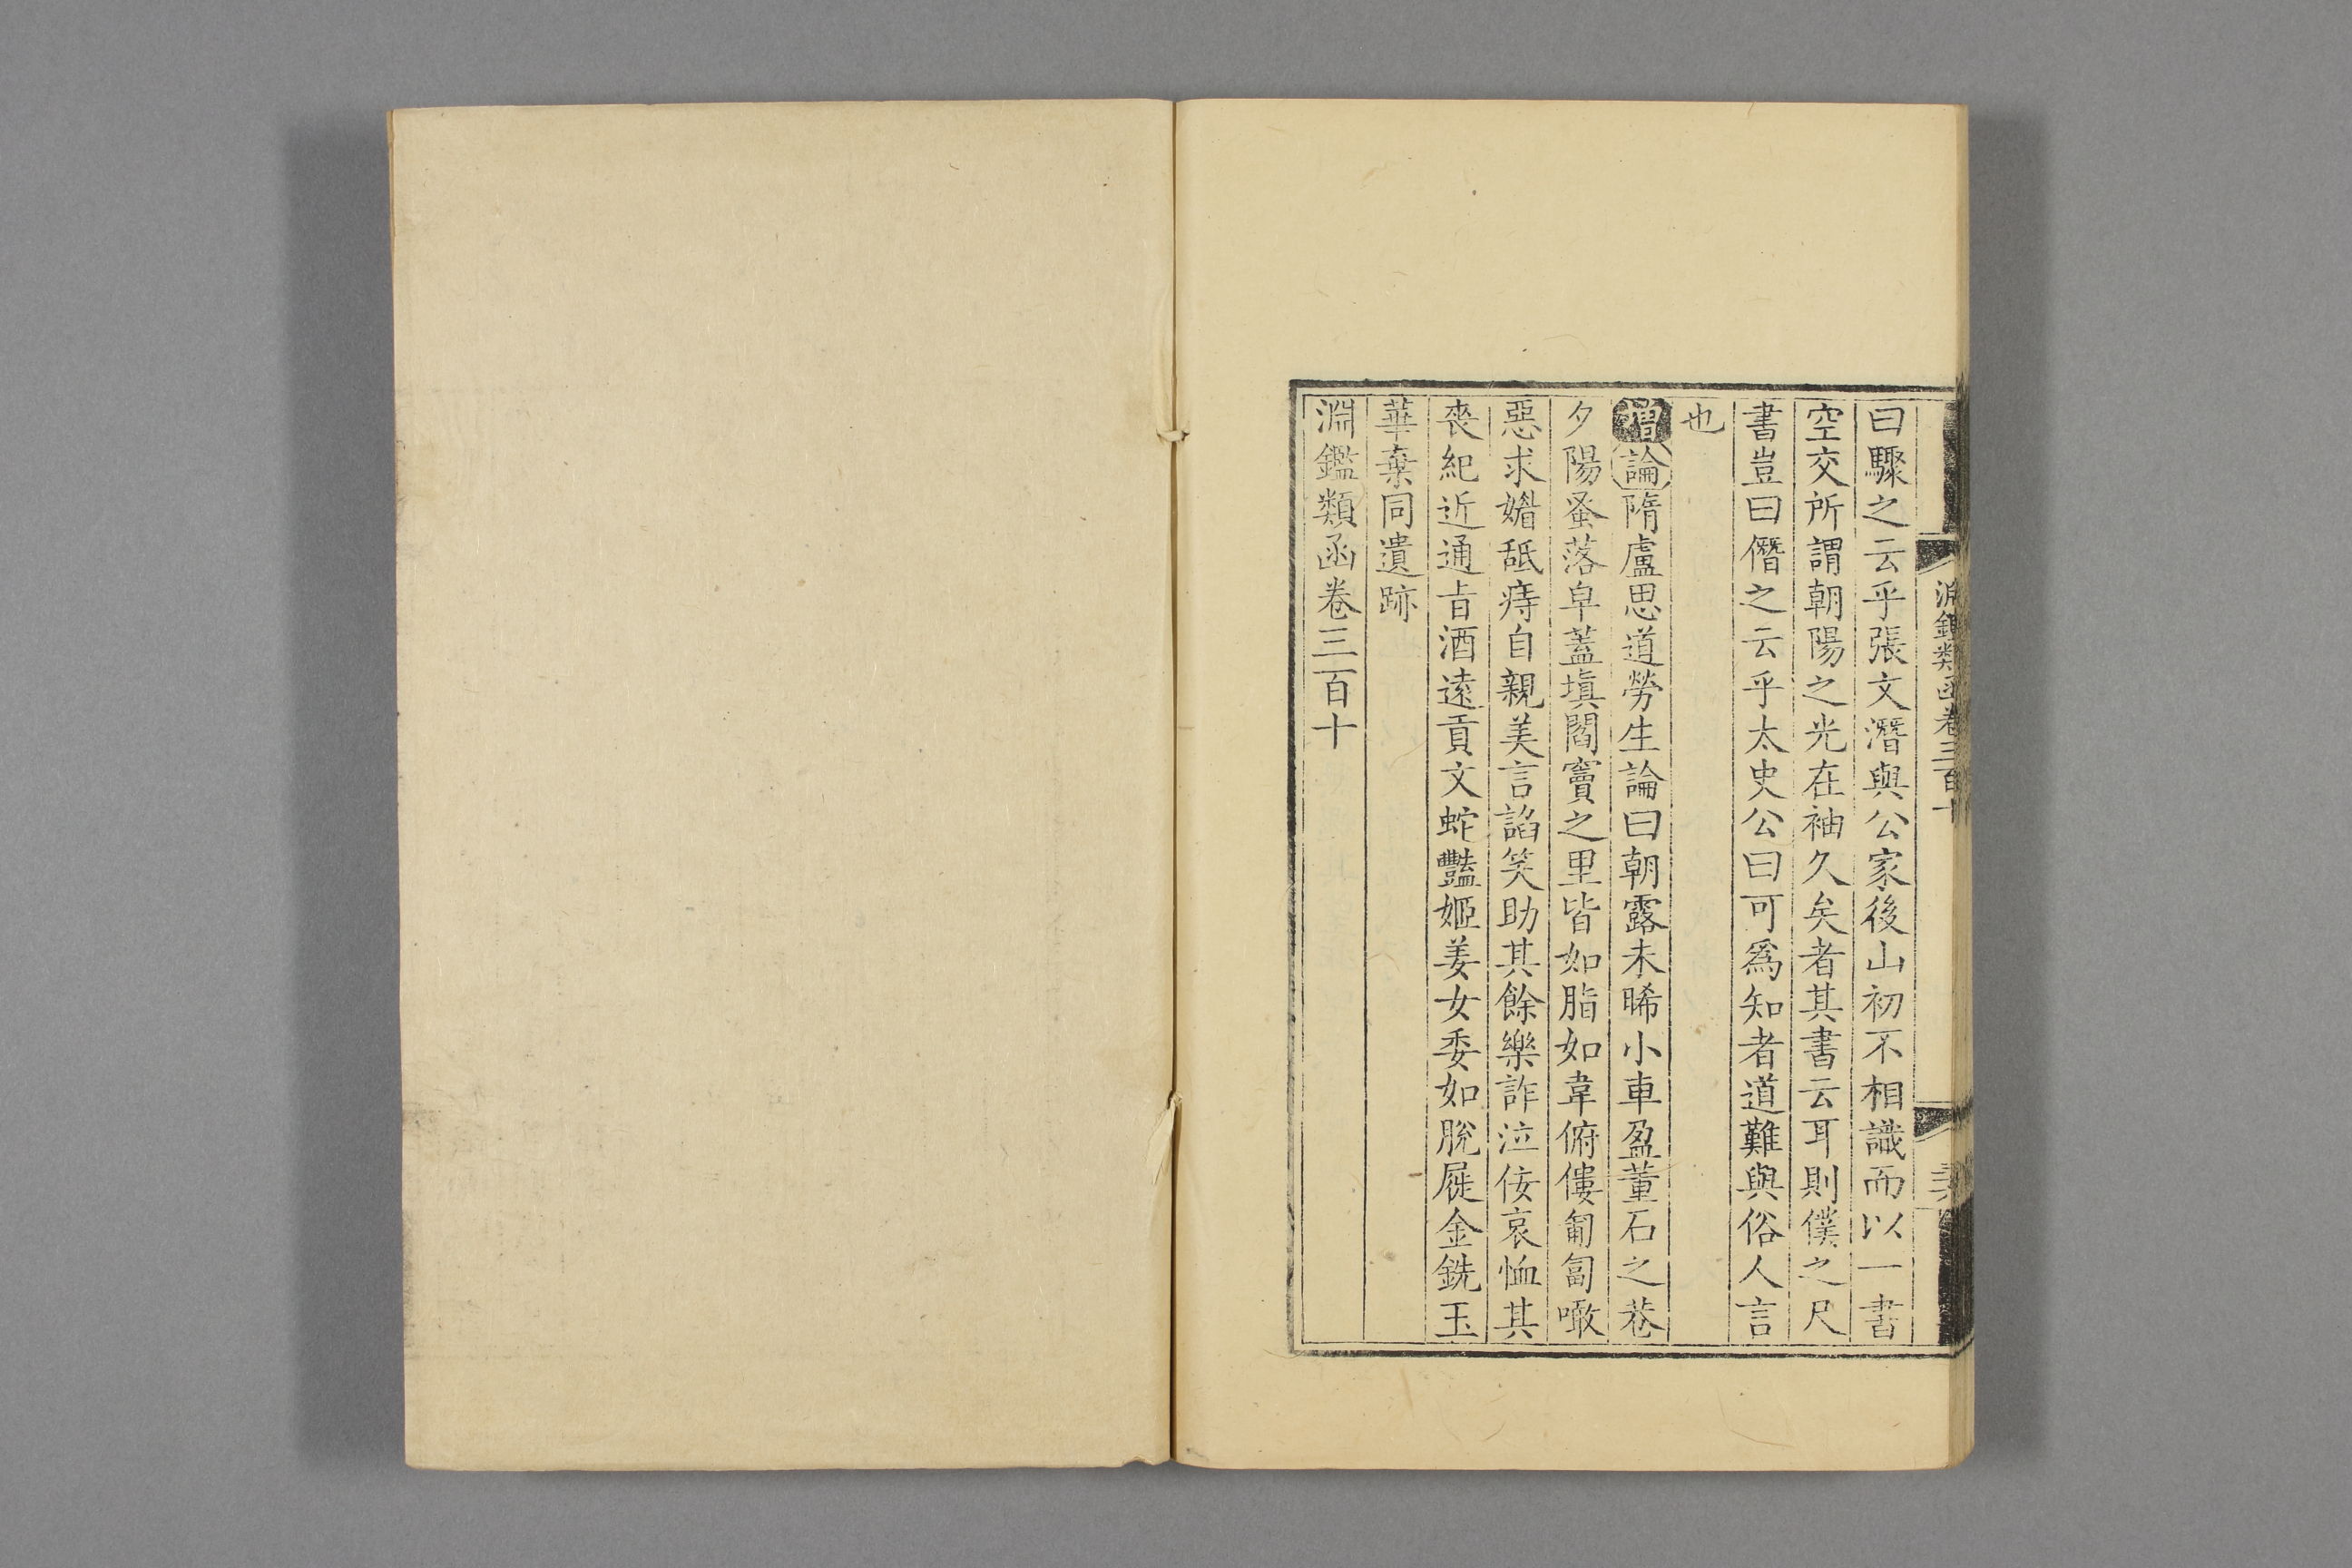 淵鑑類函卷三百十
曰驟之云乎張文潛與公家後山初不相識而以一書
空交所謂朝陽之光在袖久矣者其書云耳則僕之尺
書豈曰僭之云乎太史公曰可爲知者道難與俗人言
也
增論隋盧思道勞生論曰朝露未晞小車盈董石之巷
夕陽蚤落皁蓋塡閻竇之里皆如脂如韋俯僂匍匐噉
惡求媚舐痔自親美言諂笑助其餘樂詐泣佞哀恤其
喪紀近通旨酒遠貢文蛇豔姬美女委如脫屣金銑玉
華棄同遺跡
淵鑑類函卷三百十